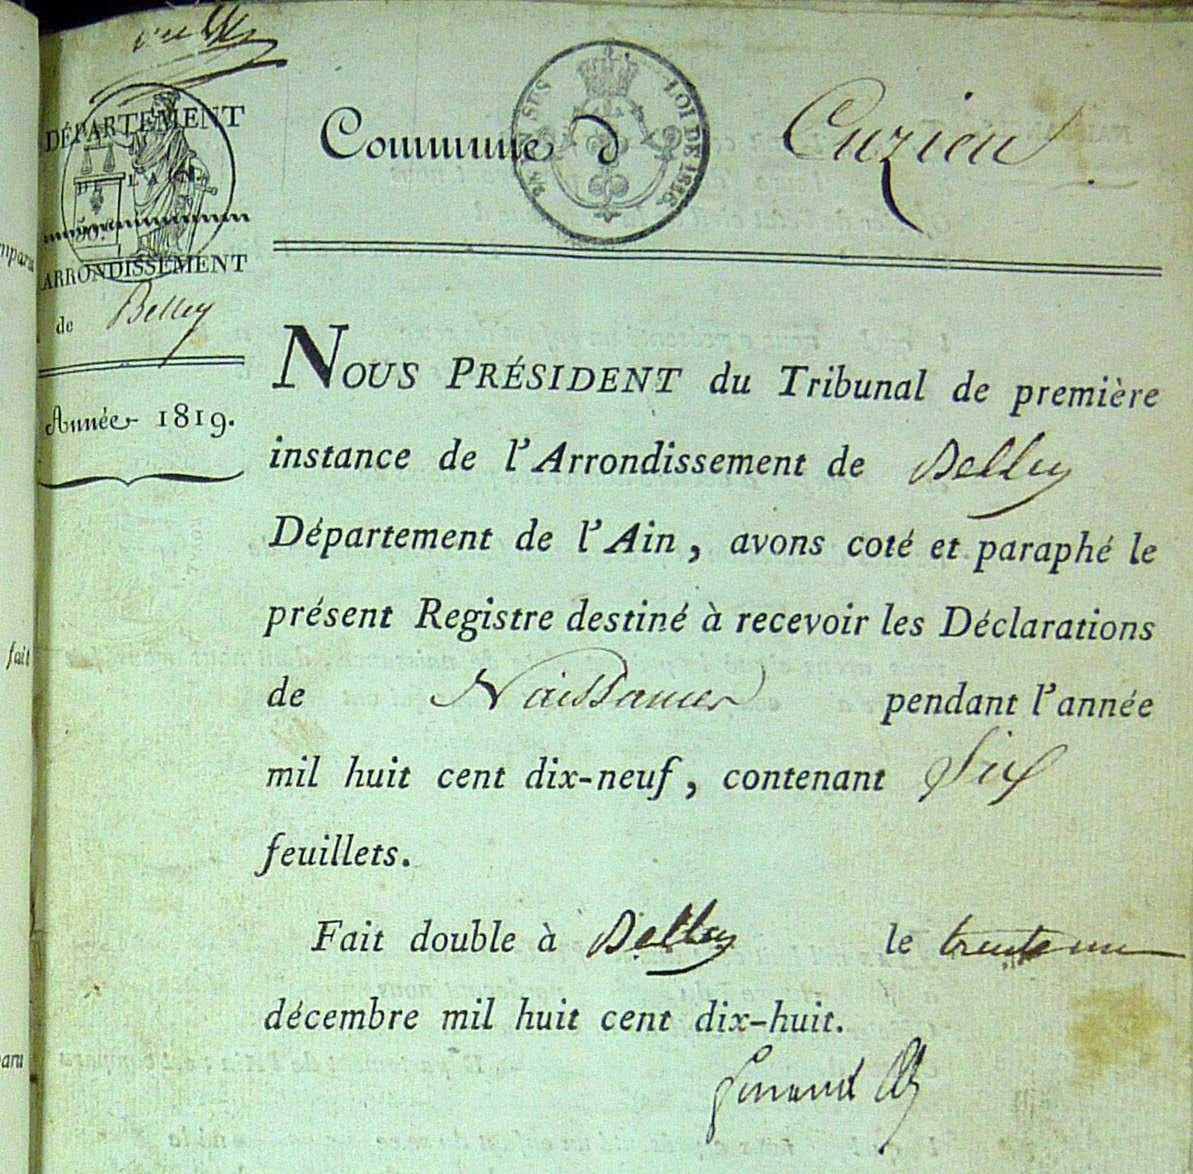 DÉPARTEMENT
DE L'AIN.
ARRONDISSEMENT
de Belley
Année 1819.
Commune d Cuzieu
LOI DE 1816
NOUS PRÉSIDENT du Tribunal de première
instance de l'Arrondissement de Belley
Département de l'Ain, avons coté et paraphé le
présent Registre destiné à recevoir les Déclarations
de Naissances pendant l'année
mil huit cent dix-neuf, contenant Six
feuillets.
Fait double à Belley le trente un
décembre mil huit cent dix-huit.